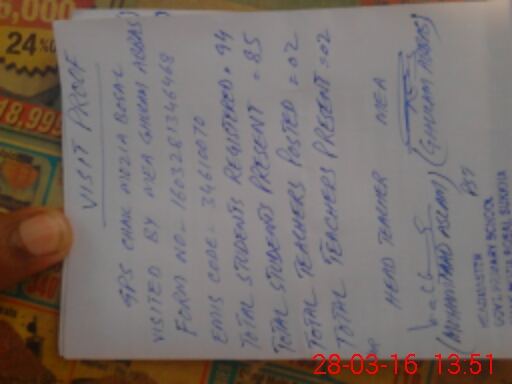 VISIT PROOF
GPS CHAK MOZIA BOSAL
VISITED BY MEA GHULAM ABBAS
FORM NO- 1603281346468
EMIS CODE- 34610070
TOTAL STUDENTS REGISTERED = 94
TOTAL STUDENTS PRESENT = 85
TOTAL TEACHERS POSTED = 02
TOTAL TEACHERS PRESENT = 02
HEAD TEACHER MEA
(MUHAMMAD ASLAM) (GHULAM ABBAS)
PST
GOVT. PRIMARY SCHOOL
5,000
24%
18,999
28-03-16 13:51